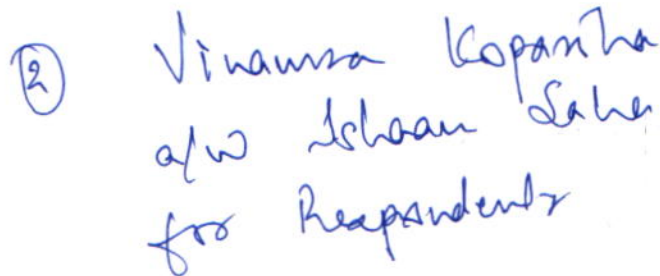 ② Vinamra Kopariha
a/w Ishaan Saha
for Respondents